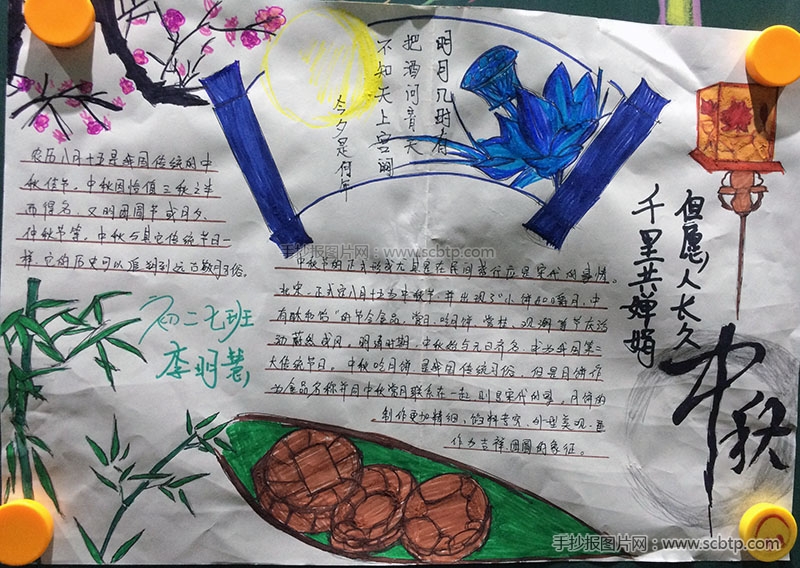 明月几时有
把酒问青天
不知天上宫阙
今夕是何年
农历八月十五是我国传统的中
秋佳节。中秋因恰值三秋之半
而得名,又叫团圆节或月夕
仲秋节等。中秋与其它传统节日一
样,它的历史可以追朔到远古敬月习俗。
手抄报图片网:www.scbtp.com
中秋节的正式形成大且是在民间盛行应是宋代的事情。
北宋,正式定八月十五为中秋节,并出现了"小饼如嚼月,中
有酥和饴"的节令食品,赏月、吃月饼、赏桂、观潮首节庆活
动蔚然成风。明清时期,中秋始与元旦齐名,成为我国第二
大传统节日。中秋吃月饼是我国传统习俗,但是月饼作
为食品名称并同中秋赏月联系在一起,则是宋代的事,月饼的
制作更加精细、馅料考究、外型美观,并
作为吉祥、团圆的象征。
但愿人长久
千里共婵娟
中秋
初二七班
李明慧
手抄报图片网:www.scbtp.com